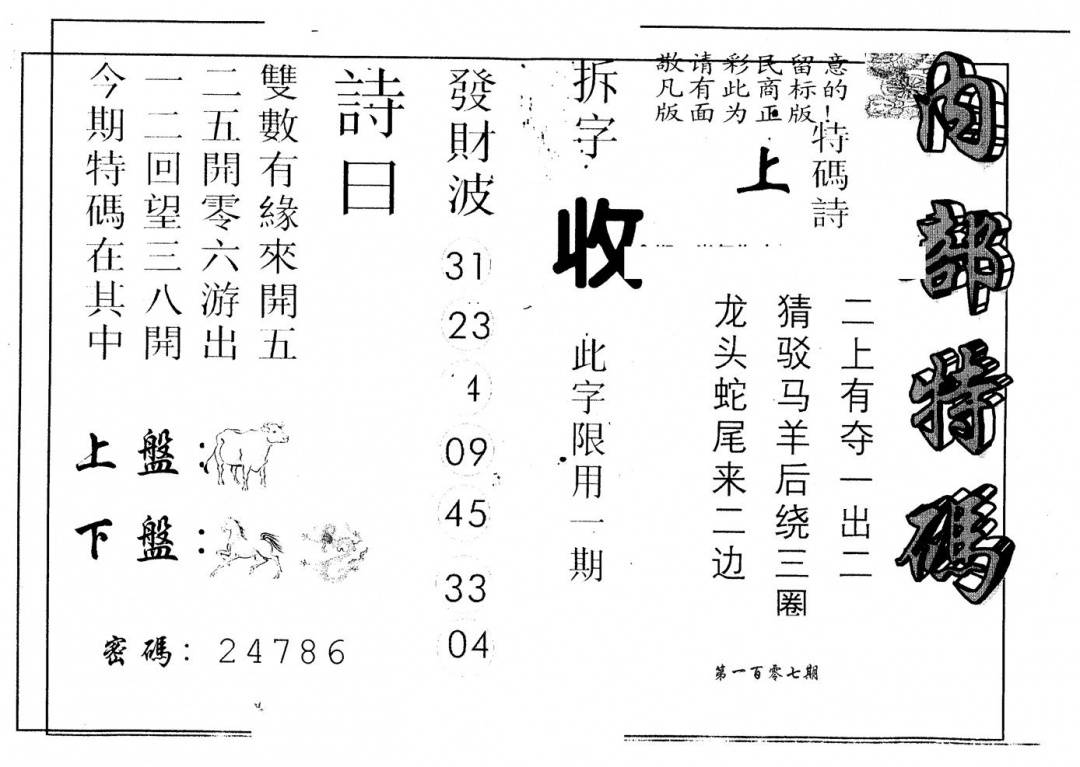 内部特碼
敬请彩民留意
凡有此商标的
版面为正版!
特碼詩
上
二上有夺一出二
猜驳马羊后绕三圈
龙头蛇尾来二边
第一百零七期
拆字
收
此字限用一期
發財波
31
23
4
09
45
33
04
詩曰
雙數有緣來開五
二五開零六游出
一二回望三八開
今期特碼在其中
上盤：
下盤：
密碼：24786